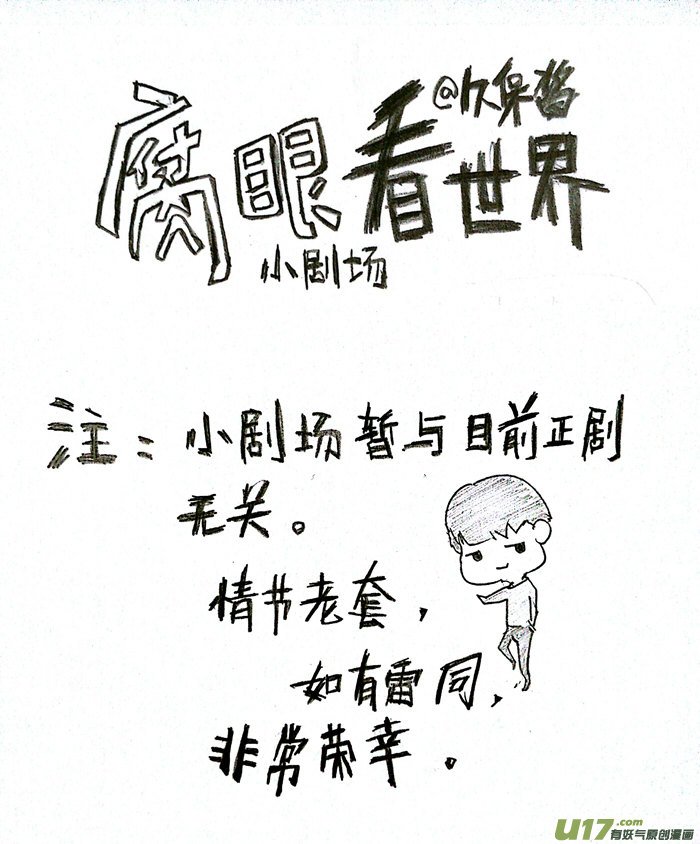 @久保酱
腐眼看世界
小剧场
注：小剧场暂与目前正剧
无关。
情节老套，
如有雷同，
非常荣幸。
U17.com
有妖气原创漫画